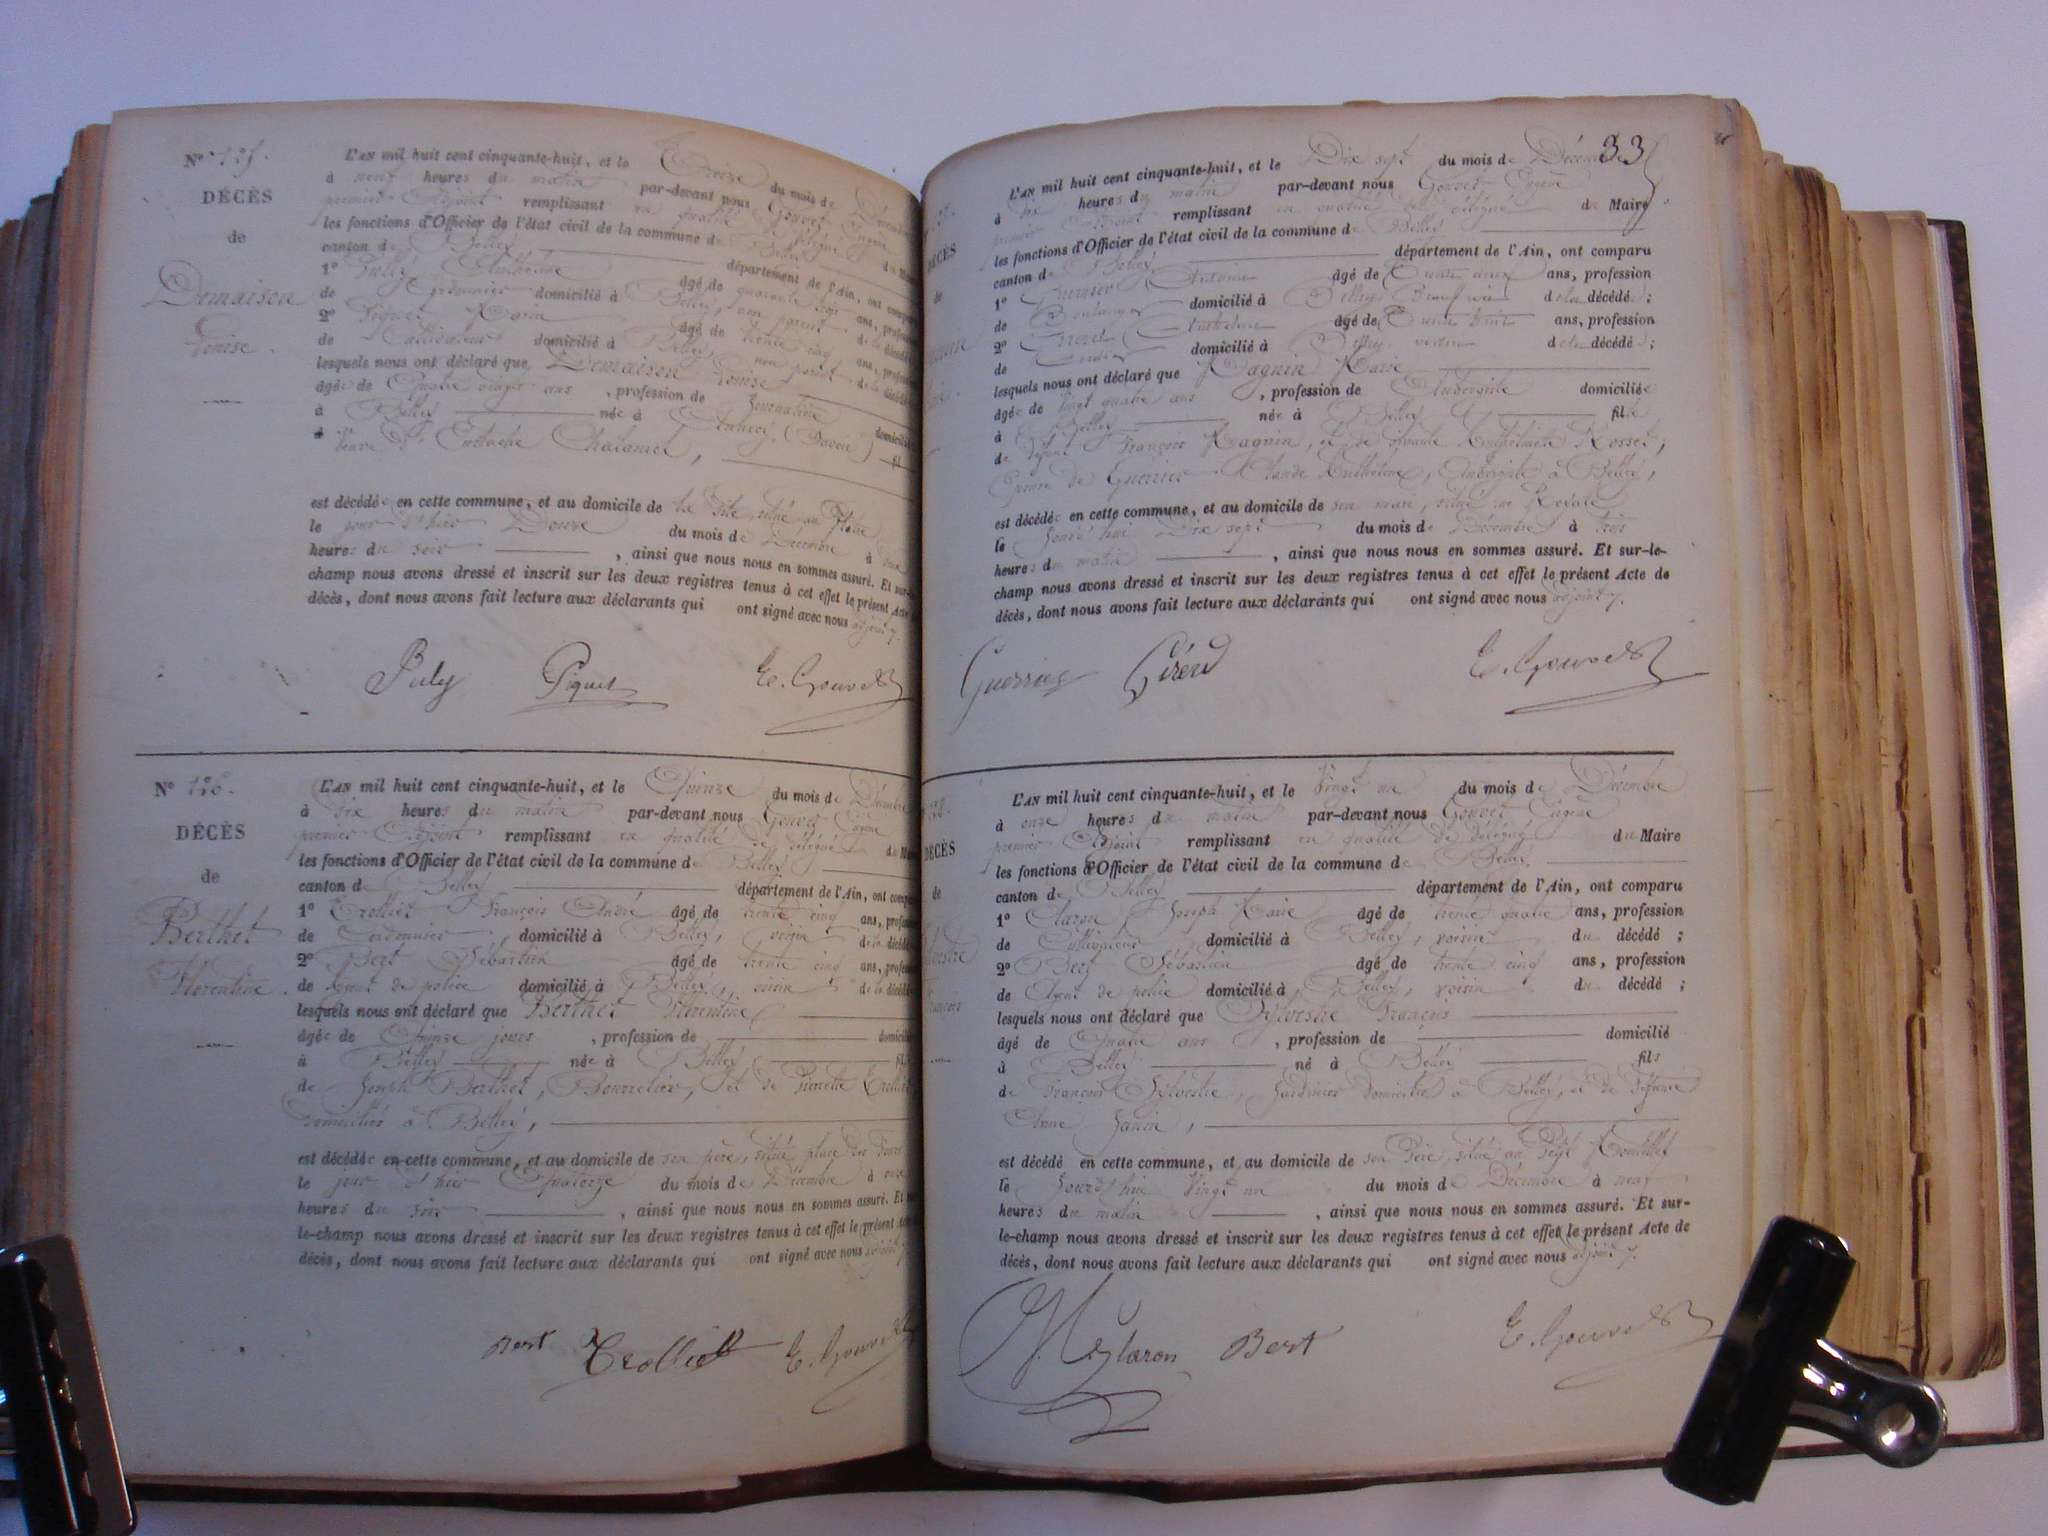 N° 125.
DÉCÈS
de
Demaison
Louise.
L'AN mil huit cent cinquante-huit, et le Treize du mois de Décembre
à neuf heures du matin par-devant nous Gouvet Eugène
premier Adjoint remplissant en qualité de délégué du Maire
les fonctions d'Officier de l'état civil de la commune de Belley
canton de Belley département de l'Ain, ont comparu
1° Anthelme âgé de quarante trois ans, profession
de Cordonnier domicilié à Belley, non parent de la décédée
2° Piquet Marin âgé de trente cinq ans, profession
de Cultivateur domicilié à Belley, non parent de la décédée
lesquels nous ont déclaré que Demaison Louise
âgée de Quatre vingts ans, profession de Journalière domiciliée
à Belley née à Annecy, (Savoie) fil
Veuve de Eustache Chalamel,
est décédée en cette commune, et au domicile de la dite, situé au
le jour d'hier Douze du mois de Décembre à
heures du soir, ainsi que nous nous en sommes assuré. Et sur-le-
champ nous avons dressé et inscrit sur les deux registres tenus à cet effet le présent Acte
décès, dont nous avons fait lecture aux déclarants qui ont signé avec nous adjoint
Puly Piquet E. Gouvet
N° 126.
DÉCÈS
de
Berthet
Florentine.
L'AN mil huit cent cinquante-huit, et le Quinze du mois de Décembre
à six heures du matin par-devant nous Gouvet Eugène
premier Adjoint remplissant en qualité de délégué du Maire
les fonctions d'Officier de l'état civil de la commune de Belley
canton de Belley département de l'Ain, ont comparu
1° Trolliet François André âgé de trente cinq ans, profession
de Cordonnier, domicilié à Belley, voisin de la décédée
2° Bert Sébastien âgé de trente cinq ans, profession
de Agent de police domicilié à Belley, voisin de la décédée
lesquels nous ont déclaré que Berthet Florentine
âgée de Quinze jours, profession de domicilié
à Belley née à Belley fil
de Joseph Berthet, Bourrelier, et de Pierrette Trolliet
domiciliés à Belley,
est décédée en cette commune, et au domicile de son père, situé place des
le jour d'hier Quatorze du mois de Décembre à onze
heures du soir, ainsi que nous nous en sommes assuré. Et
le-champ nous avons dressé et inscrit sur les deux registres tenus à cet effet le présent Acte
décès, dont nous avons fait lecture aux déclarants qui ont signé avec nous adjoint
Bert Trolliet E. Gouvet
33
DÉCÈS
de
L'AN mil huit cent cinquante-huit, et le Dix sept du mois de Décembre
à dix heures du matin par-devant nous Gouvet Eugène
premier Adjoint remplissant en qualité de délégué du Maire
les fonctions d'Officier de l'état civil de la commune de Belley
canton de Belley département de l'Ain, ont comparu
1° Antoine âgé de Trente deux ans, profession
de Boulanger domicilié à Belley, Beau frère de la décédée;
2° Anthelme âgé de Trente huit ans, profession
de domicilié à Belley, voisin de la décédée;
lesquels nous ont déclaré que Magnin Marie
âgée de Vingt quatre ans, profession de Aubergiste domiciliée
à Belley née à Belley fille
de défunt François Magnin, et de Rosset,
épouse de Guerrier Claude Anthelme, Aubergiste à Belley,
est décédée en cette commune, et au domicile de son mari, situé
le Jourd'hui Dix sept du mois de Décembre à trois
heures du matin, ainsi que nous nous en sommes assuré. Et sur-le-
champ nous avons dressé et inscrit sur les deux registres tenus à cet effet le présent Acte de
décès, dont nous avons fait lecture aux déclarants qui ont signé avec nous adjoint
E. Gouvet
DÉCÈS
de
L'AN mil huit cent cinquante-huit, et le Vingt un du mois de Décembre
à onze heures du matin par-devant nous Gouvet Eugène
premier Adjoint remplissant en qualité de délégué du Maire
les fonctions d'Officier de l'état civil de la commune de Belley
canton de Belley département de l'Ain, ont comparu
1° Claron Joseph Marie âgé de trente quatre ans, profession
de Cultivateur domicilié à Belley, voisin du décédé;
2° Bert Sébastien âgé de trente cinq ans, profession
de Agent de police domicilié à Belley, voisin du décédé;
lesquels nous ont déclaré que Sylvestre François
âgé de Quatre ans, profession de domicilié
à Belley né à Belley fils
de François Sylvestre, Jardinier domicilié à Belley, et de défunte
Anne Janin,
est décédé en cette commune, et au domicile de son Père, situé au
le Jourd'hui Vingt un du mois de Décembre à neuf
heures du matin, ainsi que nous nous en sommes assuré. Et sur-
le-champ nous avons dressé et inscrit sur les deux registres tenus à cet effet le présent Acte de
décès, dont nous avons fait lecture aux déclarants qui ont signé avec nous adjoint
Bert E. Gouvet